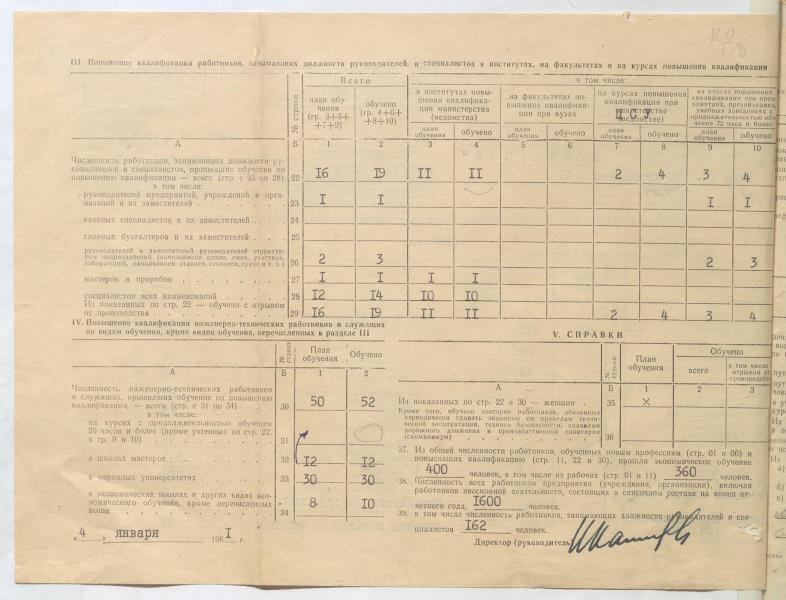 III. Повышение квалификации работников, занимающих должности руководителей, и специалистов в институтах, на факультетах и на курсах повышения квалификации
Всего
в том числе:
№ строки
план обу-
чения
(гр. 3+5+
+7+9)
обучено
(гр. 4+6+
+8+10)
в институтах повы-
шения квалифика-
ции министерства
(ведомства)
на факультетах по-
вышения квалифика-
ции при вузах
на курсах повышения
квалификации при
министерстве
(ведомстве)
ЦСУ
на курсах повышения
квалификации при пред-
приятиях, организациях,
учебных заведениях с
продолжительностью обу-
чения 72 часа и более
план обучения обучено план обучения обучено план обучения обучено план обучения обучено
А Б 1 2 3 4 5 6 7 8 9 10
Численность работников, занимающих должности ру-
ководителей и специалистов, прошедших обучение по
повышению квалификации — всего (стр. с 23 по 28) 22 16 19 II II 2 4 3 4
в том числе:
руководителей предприятий, учреждений и орга-
низаций и их заместителей 23 I I I I
главных специалистов и их заместителей 24
главных бухгалтеров и их заместителей 25
руководителей и заместителей руководителей структур-
ных подразделений (начальников цехов, смен, участков,
лабораторий, начальников отделов, секторов, групп и т. д.) 26 2 3 2 3
мастеров и прорабов 27 I I I I
специалистов всех наименований 28 I2 I4 I0 I0
Из показанных по стр. 22 — обучено с отрывом
от производства 29 I6 I9 II II 2 4 3 4
IV. Повышение квалификации инженерно-технических работников и служащих
по видам обучения, кроме видов обучения, перечисленных в разделе III
№ строки План обучения Обучено
А Б 1 2
Численность инженерно-технических работников
и служащих, прошедших обучение по повышению
квалификации, — всего (стр. с 31 по 34) 30 50 52
в том числе:
на курсах с продолжительностью обучения
20 часов и более (кроме учтенных по стр. 22
в гр. 9 и 10) 31
в школах мастеров 32 I2 I2
в народных университетах 33 30 30
в экономических школах и других видах эко-
номического обучения, кроме перечисленных
выше 34 8 I0
„4„ января 198I г.
V. СПРАВКИ
№ строки План обучения Обучено
всего в том числе с отрывом от производства
А Б 1 2 3
Из показанных по стр. 22 и 30 — женщин 35 ×
Кроме того, обучено повторно работников, обязанных
периодически сдавать экзамены по правилам техни-
ческой эксплуатации, технике безопасности, правилам
дорожного движения и производственной санитарии
(санминимум) 36
37. Из общей численности работников, обученных новым профессиям (стр. 01 и 06) и
повысивших квалификацию (стр. 11, 22 и 30), прошли экономическое обучение
400 человек, в том числе из рабочих (стр. 01 и 11) 360 человек.
38. Численность всех работников предприятия (учреждения, организации), включая
работников неосновной деятельности, состоявших в списочном составе на конец от-
четного года, I600 человек.
39. в том числе численность работников, занимающих должности руководителей и спе-
циалистов I62 человек.
Директор (руководитель)